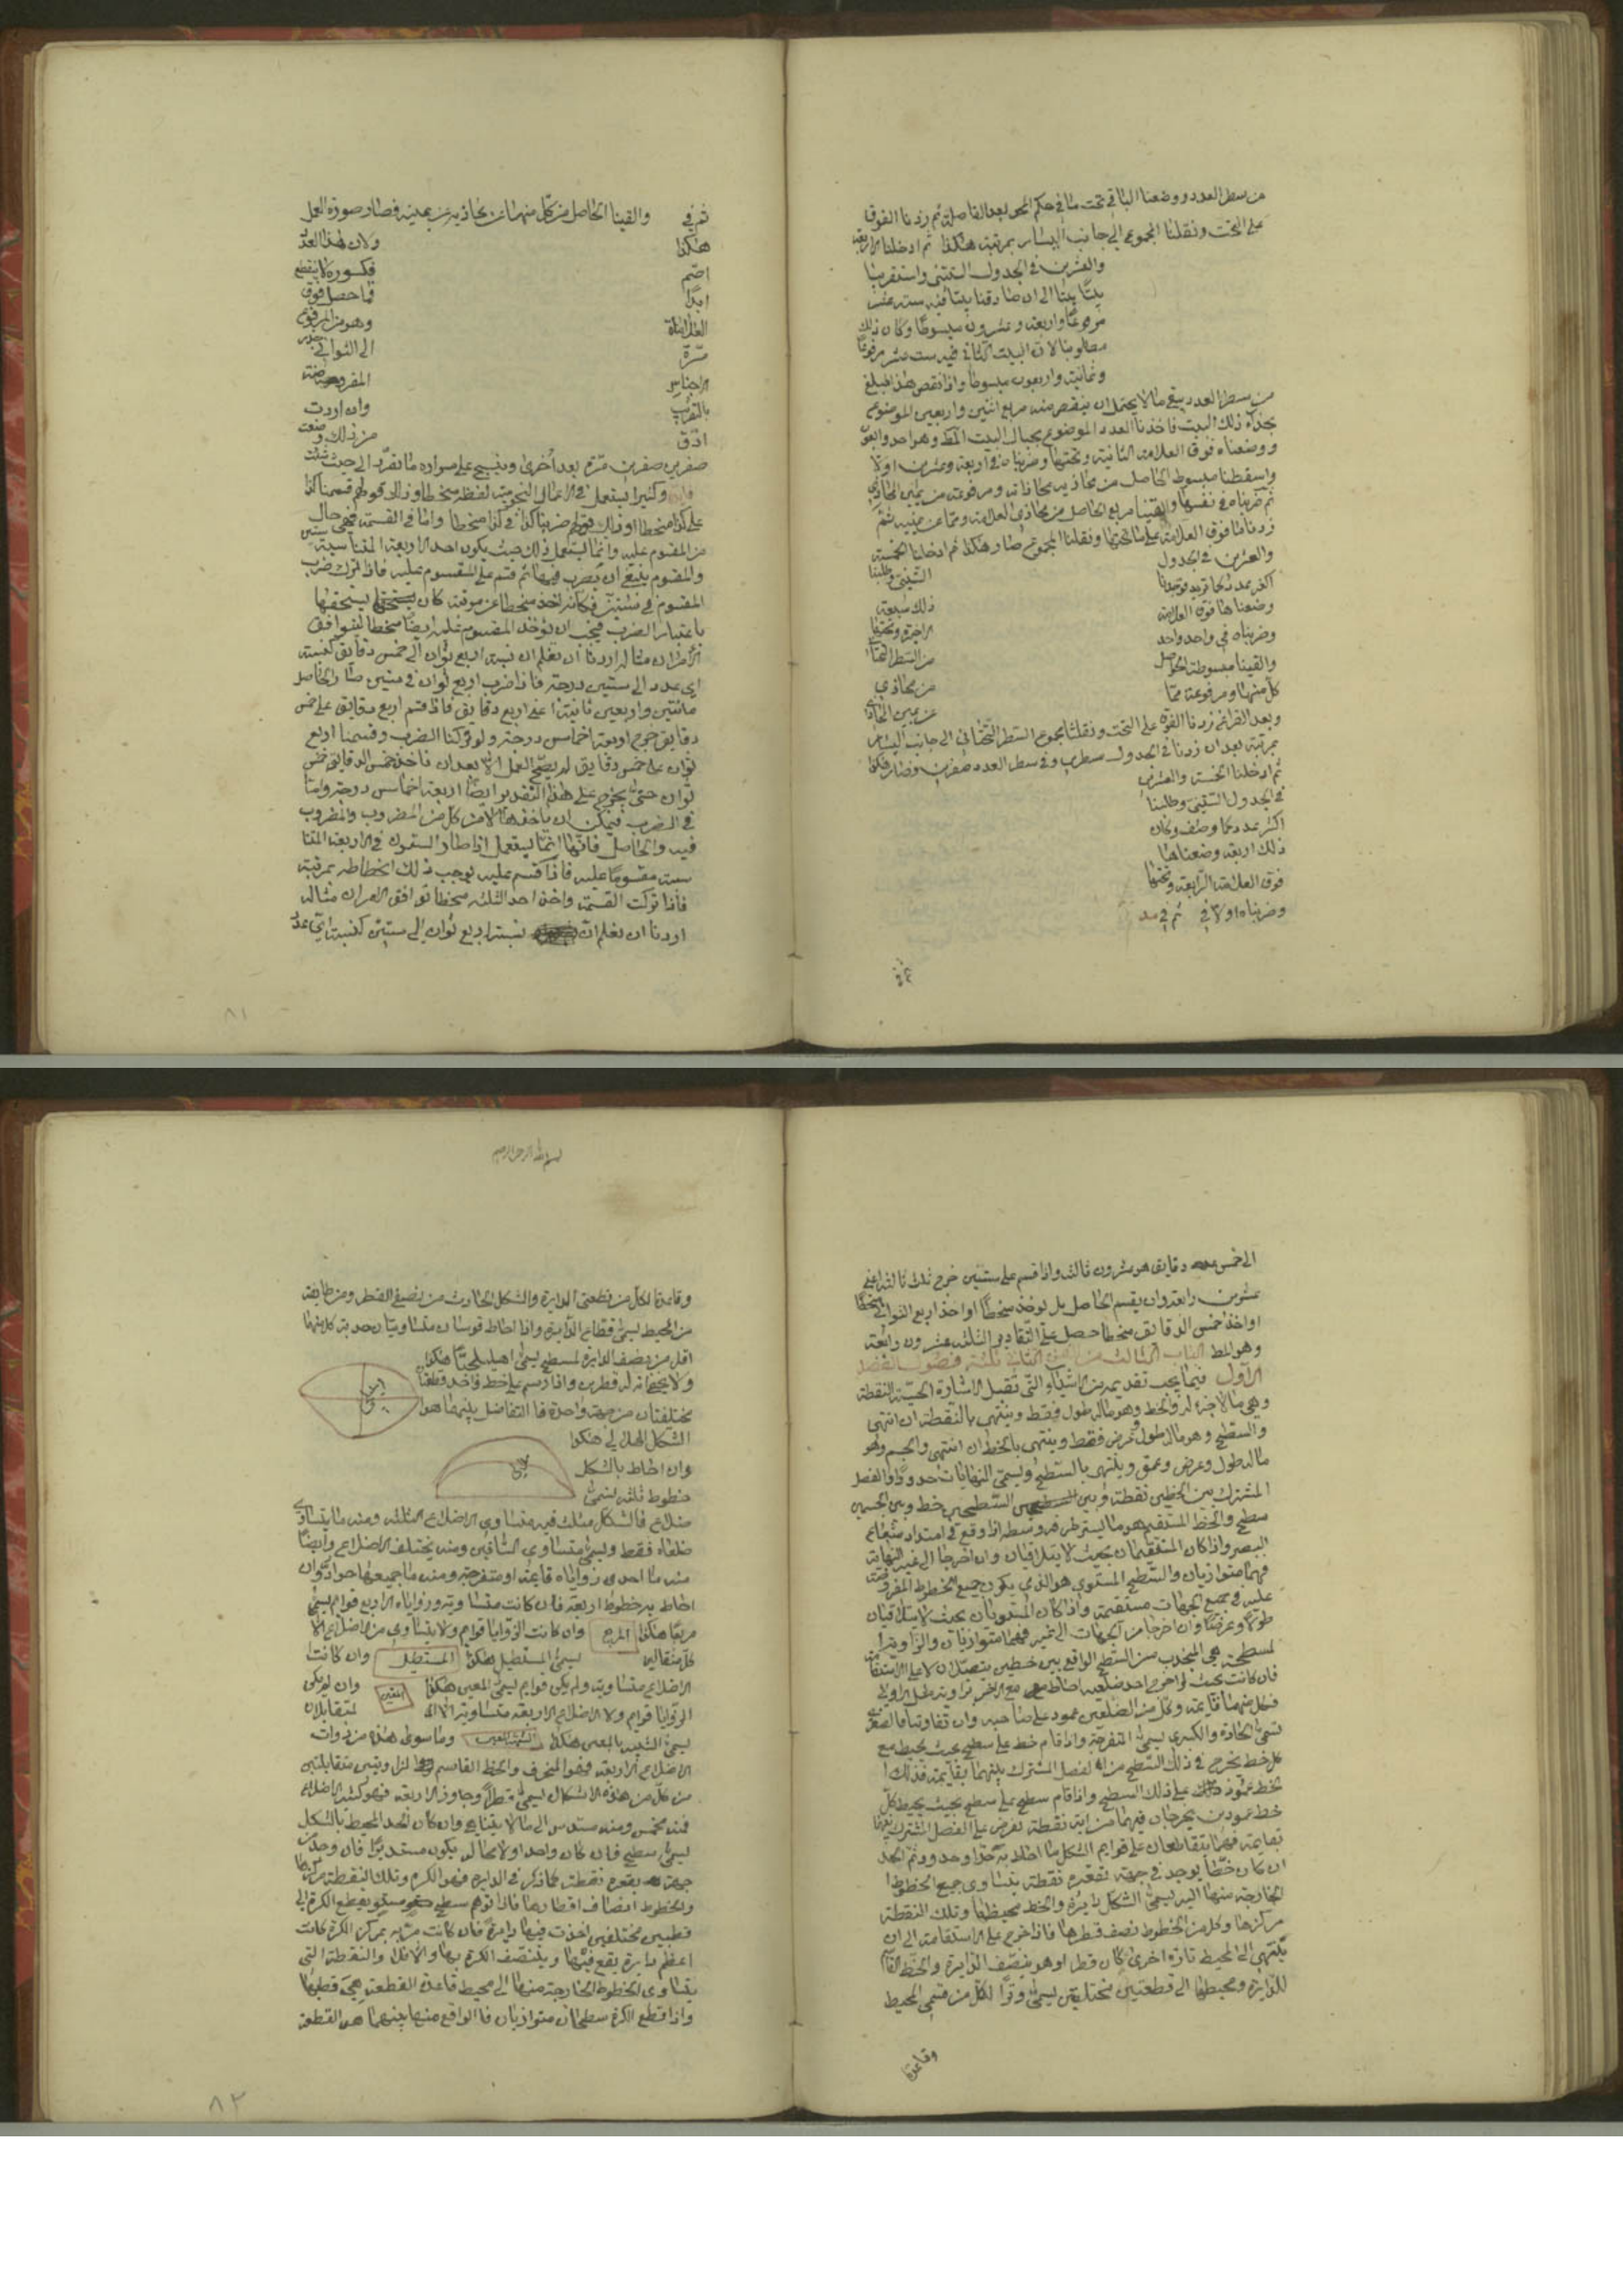 من سطر العدد ووضعنا الباقي تحت ما في حكم المحو بعد الفاصلة ثم زدنا الفوق
على التحت ونقلنا المجموع الى جانب اليسار بمرتبة هكذا ثم ادخلنا الاربعة
والعشرين في الجدول الستيني واستقرينا
بيتا بيتا الى ان صادفنا بيتا فيه ستة عشر
مرفوعا واربعة وعشرون مبسوطا وكان ذلك
مطلوبنا لان البيت الثاني فيه ست عشر مرفوعا
وثمانية واربعون مبسوطا واذا نقص هذا المبلغ
من سطر العدد يبقى ما لا يحتمل ان ينقص منه مربع اثنين واربعين الموضوع
بحذاء ذلك البيت فاخذنا العدد الموضوع بحيال البيت وهو احد واربعون
ووضعناه فوق العلامة الثانية وتحتها وضربناه في اربعة وعشرين اولا
واسقطنا مبسوط الحاصل من محاذيه ومرفوعه من يمين المحاذي
ثم ضربناه في نفسها والقينا مربع الحاصل من محاذي العلامة ومما عن يمينه ثم
زدنا ما فوق العلامة على ما تحتها ونقلنا المجموع صار هكذا ثم ادخلنا الخمسة
والعشرين في الجدول الستيني وطلبنا
اكثر عدد كما تريد فوجدنا ذلك سبعة
وضعناها فوق العلامة الاخيرة وتحتها
وضربناه في واحد واحد من السطر التحتاني
والقينا مبسوط الحواصل من محاذي
كل منها ومرفوعه مما عن يمين المحاذي
وبعد الفراغ زدنا الفوق على التحت ونقلنا مجموع السطر التحتاني الى جانب اليسار
بمرتبة بعد ان زدنا في الجدول سطرين وفي سطر العدد صفرين وصار هكذا
ثم ادخلنا الخمسة والعشرين
في الجدول الستيني وطلبنا
اكثر عدد كما وصف وكان
ذلك اربعة وضعناها
فوق العلامة الرابعة وتحتها
وضربناه اولا في ثم في مد
ثم في
ثم في والقينا الحاصل من كل منهما من محاذيه عن يمينه فصار صورة العمل
هكذا ولان لهذا العدد
اصم فكسوره لا ينقطع
ابدا فما حصل فوق
العلامات وهو من المرفوع
مرة الى الثواني جذر
الاجناس المفروضة
بالتقريب وان اردت
ادق من ذلك وضعت
صفرين صفرين مرة بعد اخرى وينسج على منواله ما تقرر الى حيث شئت
وكثيرا يستعمل في الاعمال النجومية لفظة منحطا وذلك قولهم قسمنا كذا
على كذا منحطا او ضربنا كذا في كذا منحطا واما في القسمة فهي حال
من المقسوم عليه وانما يستعمل ذلك حيث يكون احد الاربعة المتناسبة ستين
والمقسوم ينبغي ان يضرب فيها ثم قسم على المقسوم عليه فاذا ترك ضرب
المقسوم في ستين فكانه اخذ منحطا عن مرتبة كان يستحقها
باعتبار الضرب فيجب ان يؤخذ المقسوم عليه ايضا منحطا ليتوافق
الامران مثاله اردنا ان نعلم ان نسبة اربع ثوان الى خمس دقايق كنسبة
اي عدد الى ستين درجة فاذا ضرب اربع ثوان في ستين صار الحاصل
مائتين واربعين ثانية اعني اربع دقايق فاذا قسم اربع دقايق على خمس
دقايق خرج اربعة اخماس درجة ولو تركنا الضرب وقسمنا اربع
ثوان على خمس دقايق لم يصح العمل الا بعد ان ناخذ خمس الدقايق خمس
ثوان حتى يخرج على هذا التقدير ايضا اربعة اخماس درجة واما
في الضرب فيمكن ان ياخذها كل من المضروب والمضروب
فيه والحاصل فانها انما يستعمل اذا صار الستون في الاربعة المتنا
سبة مقسوما عليه فاذا قسم عليه يوجب ذلك انحطاطه بمرتبة
فاذا تركت القسمة واخذ احد الثلثة منحطا توافق الامران مثاله
اردنا ان نعلم ان نسبة اربع ثوان الى ستين كنسبة اي عدد
٨١
الى خمس دقايق هو عشرون ثالثة واذا قسم على ستين خرج ثلث ثالثة اعني
عشرين رابعة وان يقسم الحاصل بل يؤخذ منحطا او اخذ اربع الثواني منحطا
او اخذ خمس الدقايق منحطا حصل على التقادير الثلثة عشرون رابعة
وهو المط الباب الثالث من الفن الثاني ثلثة فصول الفصل
الاول فيما يجب تقديمه من الاشياء التي تقبل الاشارة الحسية النقطة
وهي ما لا جزء له والخط وهو ما له طول فقط وينتهي بالنقطة ان انتهى
والسطح وهو ما له طول وعرض فقط وينتهي بالخط ان انتهى والجسم وهو
ما له طول وعرض وعمق وينتهي بالسطح ويسمى النهايات حدودا والفصل
المشترك بين الخطين نقطة وبين السطحين خط وبين الجسمين
سطح والخط المستقيم هو ما يستر طرفه وسطه اذا وقع في امتداد شعاع
البصر واذا كان المستقيمان بحيث لا يتلاقيان وان اخرجا الى غير النهاية
فهما متوازيان والسطح المستوي هو الذي يكون جميع الخطوط المفروضة
عليه في جميع الجهات مستقيمة واذا كان المستويان بحيث لا يتلاقيان
طولا وعرضا وان اخرجا من الجهات الى غير فهما متوازيان والزاوية
المسطحة هي المنحدب من السطح الواقع بين خطين يتصلان لا على الاستقامة
فان كانت بحيث لو اخرج احد ضلعيه احاط مع الاخر بزاوية مثل الاولى
فكل منهما قائمة وكل من الضلعين عمود على صاحبه وان تفاوتا فالصغرى
تسمى الحادة والكبرى تسمى المنفرجة واذا قام خط على سطح بحيث يحيط مع
كل خط يخرج في ذلك السطح من الفصل المشترك بينهما بقايمة فذلك
الخط عمود على ذلك السطح واذا قام سطح على سطح بحيث يحيط كل
خط عمودين يخرجان فيهما من اية نقطة تفرض على الفصل المشترك بينهما
بقايمة فهما يتقاطعان على قوايم الشكل ما احاط به حد او حدود ثم الحد
ان كان خطا يوجد في جهة تقعيره نقطة يتساوى جميع الخطوط
الخارجة منها اليه يسمى الشكل دايرة والخط محيطها وتلك النقطة
مركزها وكل من الخطوط نصف قطرها فاذا اخرج على الاستقامة الى ان
ينتهي الى المحيط تارة اخرى كان قطرا وهو ينصف الدايرة والخط القاسم
للدايرة ومحيطها الى قطعتين مختلفتين يسمى وترا لكل من قسمي المحيط
وقاعدة
بسم الله الرحمن الرحيم
وقاعدة لكل من قطعتي الدايرة والشكل الحادث من نصفي القطر ومن طايفة
من المحيط يسمى قطاع الدايرة واذا احاط قوسان متساويتان حدبة كل منهما
اقل من نصف الدايرة لسطح يسمى اهليلجيا هكذا
ولا يخفى انه له قطرين واذا رسم على خط واحد قطعتا
مختلفتان من جهة واحدة فالتفاضل بينهما هو
الشكل الهلالي هكذا
وان احاط بالشكل
خطوط ثلثة يسمى
ضلاع فالشكل مثلث فمنه متساوي الاضلاع الثلثة ومنه ما يتساوى
ضلعاه فقط ويسمى متساوي الساقين ومنه مختلف الاضلاع وايضا
منه ما احدى زواياه قايمة او منفرجة ومنه ما جميعها حواد وان
احاط به خطوط اربعة فان كانت متساوية وزواياه الاربع قوايم يسمى
مربعا هكذا المربع وان كانت الزوايا قوايم ولا يتساوى من اضلاع الا
كل متقابلين يسمى المستطيل هكذا المستطيل وان كانت
الاضلاع متساوية ولم يكن قوايم يسمى المعين هكذا المعين وان لم يكن
الزوايا قوايم ولا الاضلاع الاربعة متساوية الا المتقابلان
يسمى الشبيه بالمعين هكذا الشبيه بالمعين وما سوى هذه من ذوات
الاضلاع الاربعة فهو المنحرف والخط القاسم لزاويتين متقابلتين
من كل من هذه الاشكال يسمى قطرا وجاوز الاربعة فهو كثير الاضلاع
فمنه مخمس ومنه مسدس الى ما لا يتناهى وان كان الحد المحيط بالشكل
يسمى سطح فان كان واحدا ولا محالة يكون مستديرا فان وجد من
جهة تقعره نقطة كما ذكر في الدايرة فهو الكرة وتلك النقطة مركزها
والخطوط انصاف اقطارها فاذا توهم سطح مستو يقطع الكرة الى
قطعتين مختلفتين احدثت فيها دايرة فان كانت مرت بمركز الكرة كانت
اعظم دايرة يقع فيها وينتصف الكرة بها والا فلا والنقطة التي
يتساوى الخطوط الخارجة منها الى محيط قاعدة القطعة هي قطبها
واذا قطع الكرة سطحان متوازيان فالواقع منها بينهما هو القطعة
٨٢